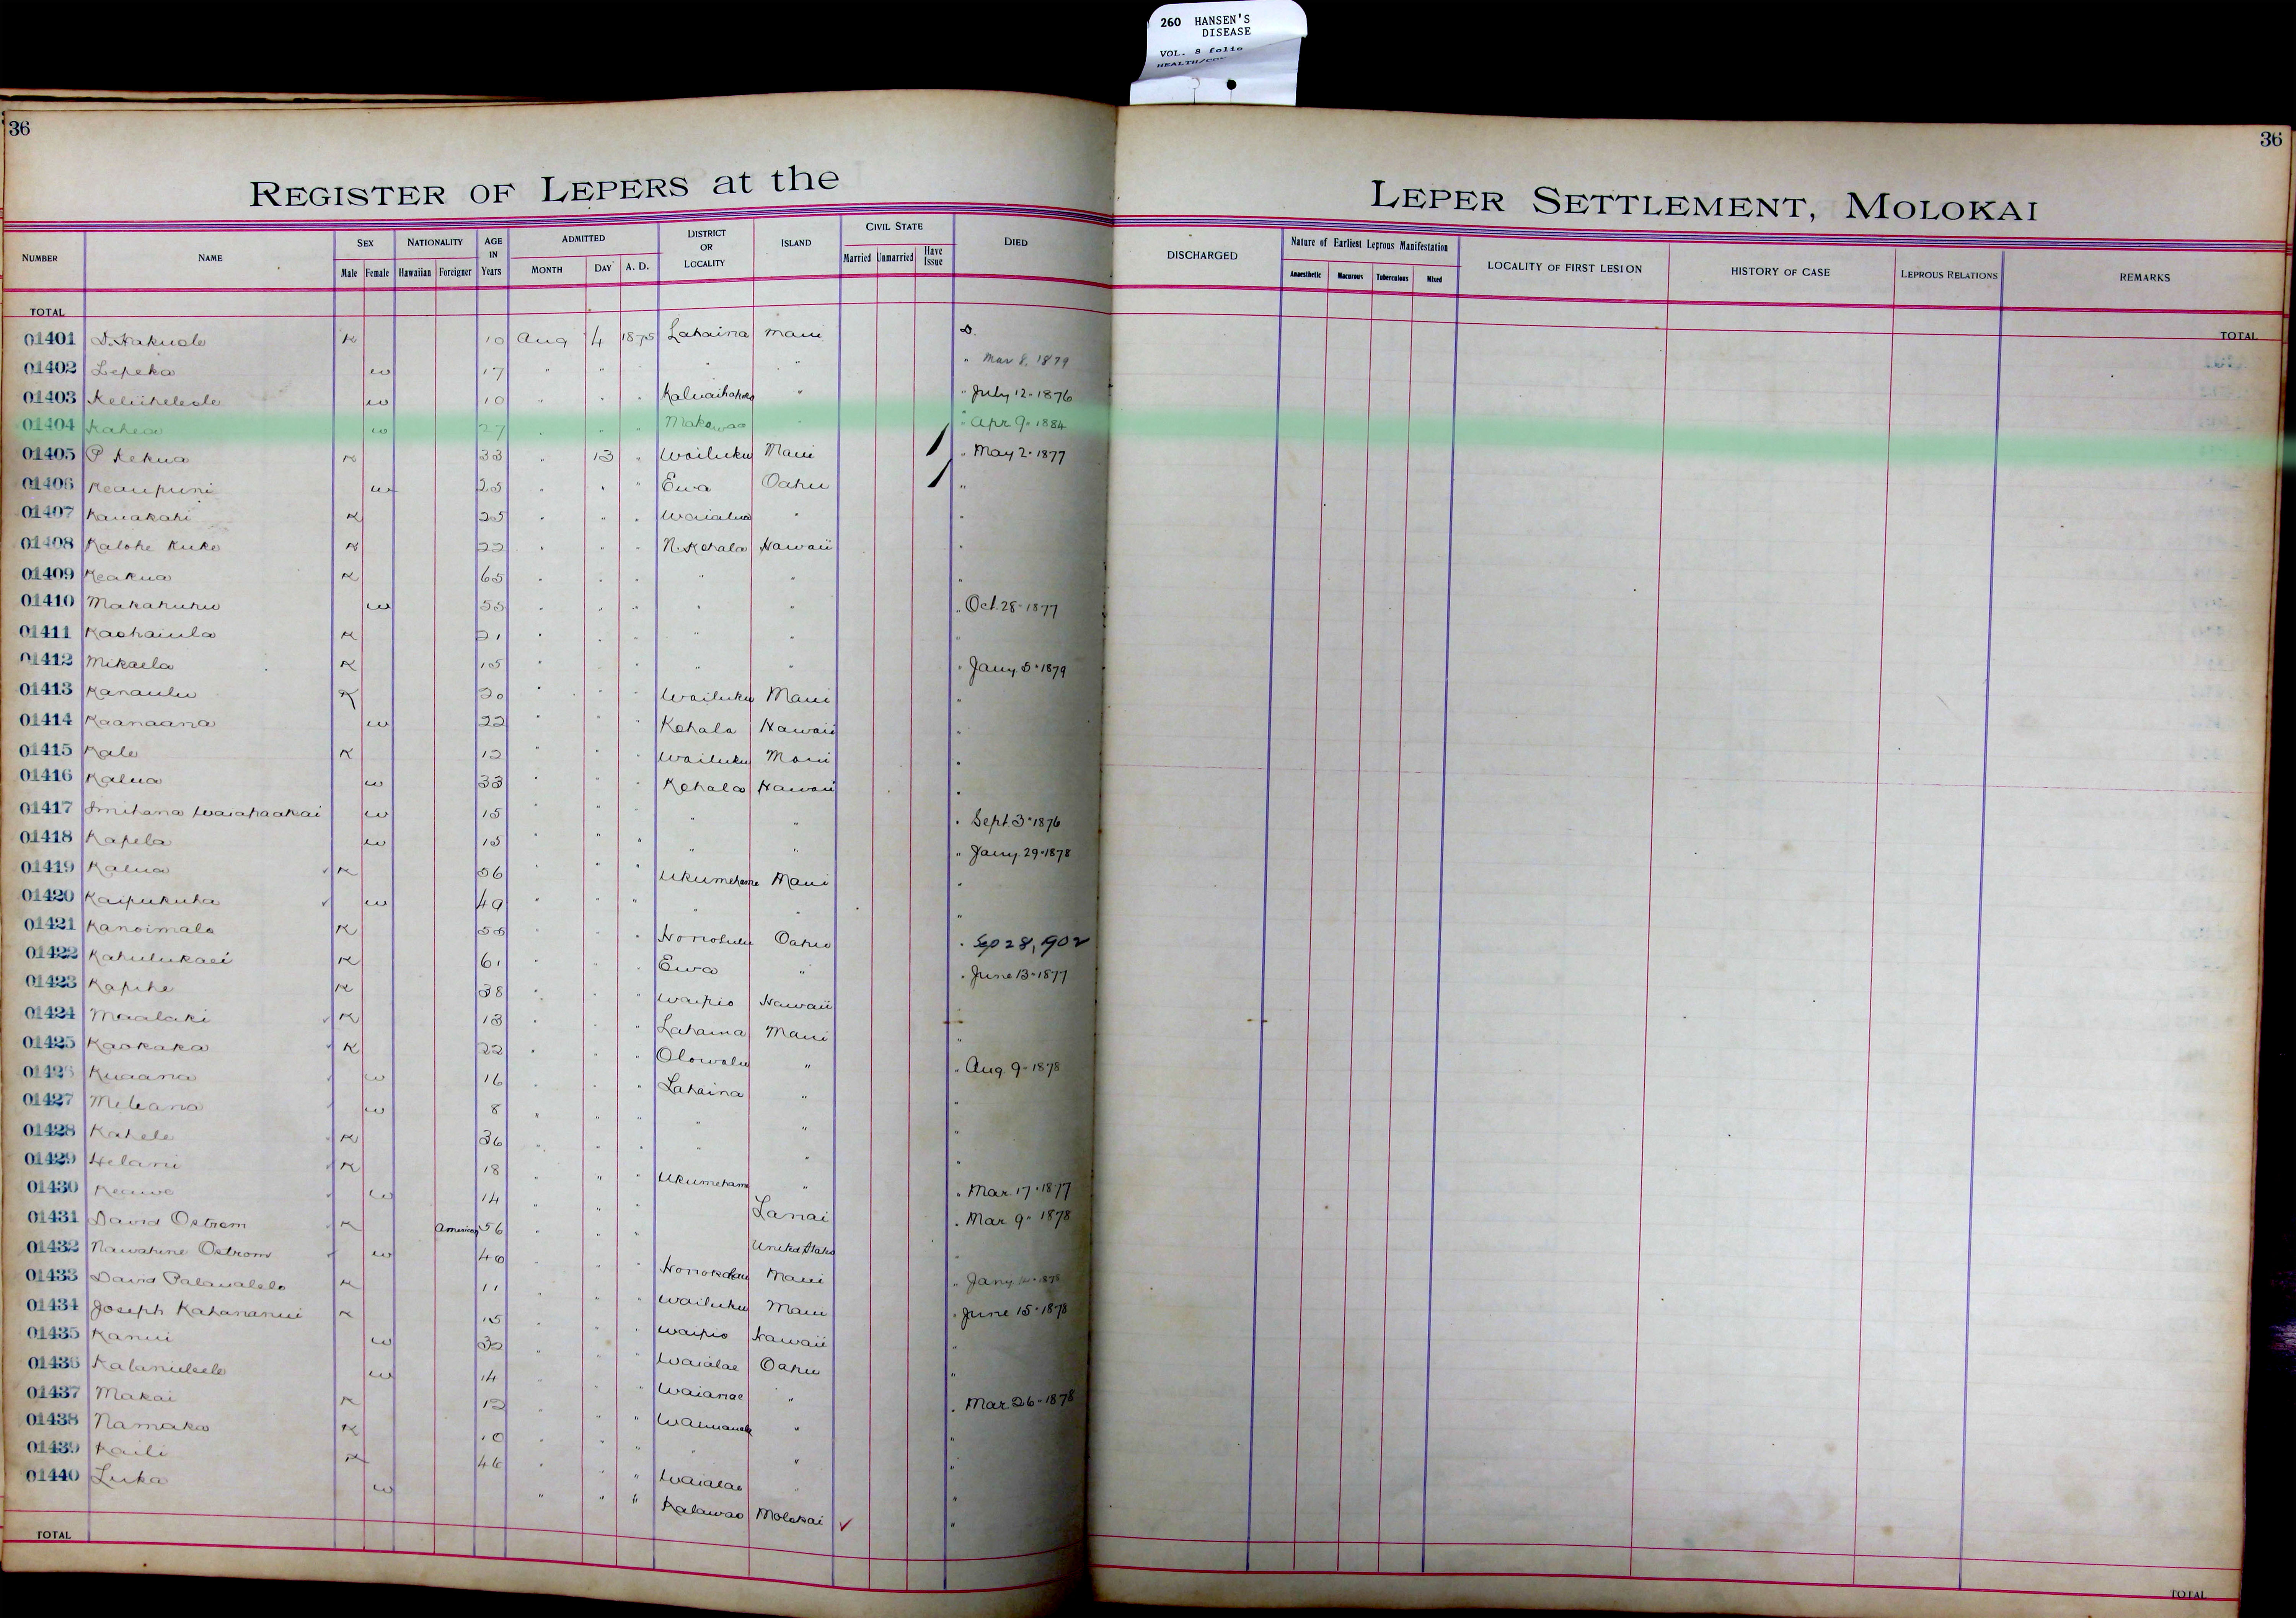 260 HANSEN'S
DISEASE
VOL. 8 folio
36
36
REGISTER OF LEPERS at the
LEPER SETTLEMENT, MOLOKAI
NUMBER NAME SEX NATIONALITY AGE IN Years ADMITTED DISTRICT OR LOCALITY ISLAND CIVIL STATE DIED DISCHARGED Nature of Earliest Leprous Manifestation LOCALITY OF FIRST LESION HISTORY OF CASE LEPROUS RELATIONS REMARKS
Male Female Hawaiian Foreigner MONTH DAY A. D. Married Unmarried Have Issue Anaesthetic Macurous Tuberculous Mixed
TOTAL
TOTAL
01401 K 10 Aug 4 1875 Lahaina Maui D.
01402 Lepeka w 17 " " " " " " Mar 8. 1879
01403 w 10 " " " " " July 12. 1876
01404 Kahea w 27 " " " Makawao " " Apr 9. 1884
01405 P Kekua K 33 " 13 " Wailuku Maui " May 2. 1877
01406 Keaupuni w 25 " " " Ewa Oahu "
01407 Kauakahi K 25 " " " Waialua " "
01408 Kalohe Kuke K 22 " " " N. Kohala Hawaii "
01409 Keakua K 65 " " " " " "
01410 Makahuhu w 55 " " " " " " Oct. 28. 1877
01411 Kaohaiula K 21 " " " " " "
01412 Mikaela K 15 " " " " " " Jany. 5. 1879
01413 Kanaulu K 20 " " " Wailuku Maui "
01414 Kaanaana w 22 " " " Kohala Hawaii "
01415 Kale K 12 " " " Wailuku Maui "
01416 Kalua w 33 " " " Kohala Hawaii "
01417 w 15 " " " " " " Sept. 3. 1876
01418 Kapela w 15 " " " " " " Jany. 29. 1878
01419 Kalua K 56 " " " Ukumehame Maui "
01420 Kaipukuha w 49 " " " " " "
01421 Kanoimalo K " " " Honolulu Oahu " Sep 28, 1902
01422 Kahulukaei K 61 " " " Ewa " " June 13. 1877
01423 Kapihe K 38 " " " Waipio Hawaii
01424 Maalaki K 13 " " " Lahaina Maui "
01425 Kaokaka K 22 " " " Olowalu " " Aug. 9. 1878
01426 Kuaana w 16 " " " Lahaina " "
01427 Meleana w 8 " " " " " "
01428 Kahele K 36 " " " " " "
01429 Helani K 18 " " " Ukumehame " " Mar. 17. 1877
01430 Keawe w 14 " " " Lanai " Mar. 9. 1878
01431 David Ostrom K American 56 " " " United States "
01432 Nawahine Ostrom w " " " Honokohau Maui " Jany. 1878
01433 David K 11 " " " Wailuku Maui " June 15. 1878
01434 Joseph Kahananui K 15 " " " Waipio Hawaii "
01435 Kanui w 32 " " " Waialae Oahu "
01436 w 14 " " " Waianae " " Mar. 26. 1878
01437 Makai K 12 " " " " "
01438 Namaka K 10 " " " " " "
01439 Kaili K 46 " " " Waialae " "
01440 Luka w " " " Kalawao Molokai ✓ "
TOTAL
TOTAL